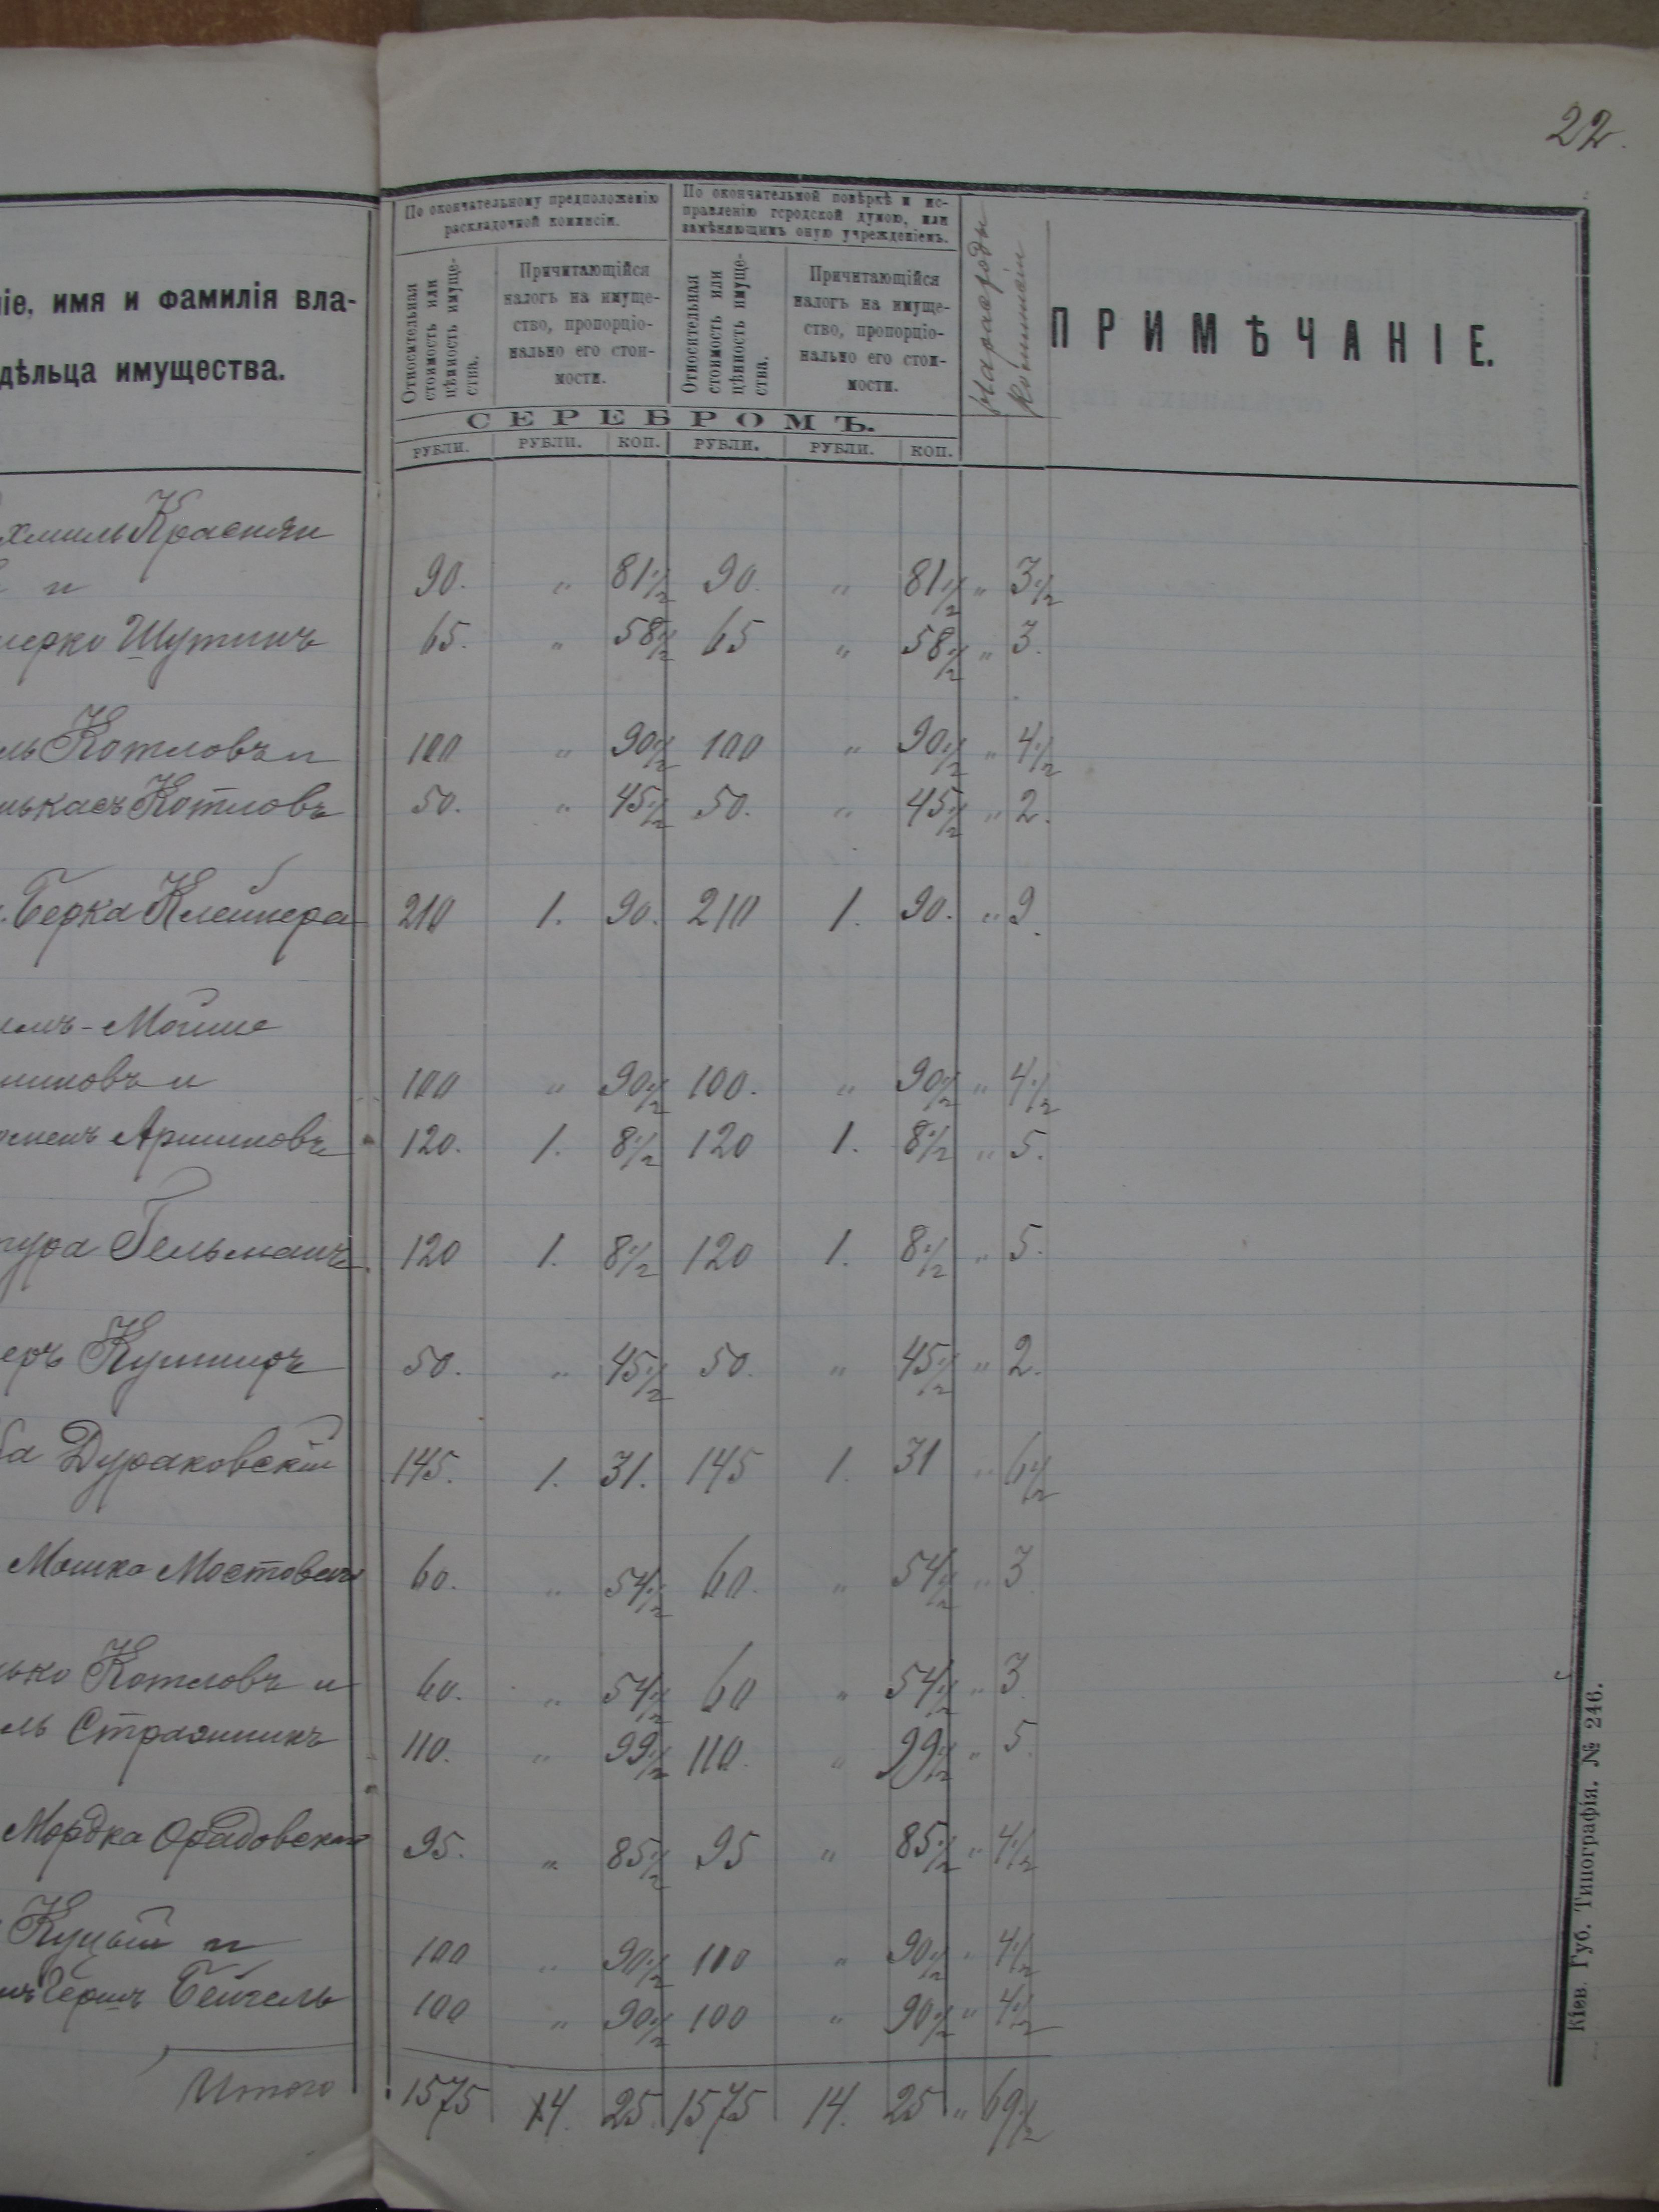 22.
ніе, имя и фамилія вла-
дѣльца имущества.
По окончательному предположенію
раскладочной коммисіи.
По окончательной повѣркѣ и ис-
правленію городской думою, или
замѣняющимъ оную учрежденіемъ.
Относительная
стоимость или
цѣнность имуще-
ства.
Причитающійся
налогъ на имуще-
ство, пропорціо-
нально его стои-
мости.
Относительная
стоимость или
цѣнность имуще-
ства.
Причитающійся
налогъ на имуще-
ство, пропорціо-
нально его стои-
мости.
На расходы
Коммисіи
ПРИМѢЧАНІЕ.
СЕРЕБРОМЪ.
РУБЛИ. РУБЛИ. КОП. РУБЛИ. РУБЛИ. КОП.
хмиль Краснян
и 90. " 81 1/2 90. " 81 1/2 " 3 1/2
Шутинъ 65. " 58 1/2 65 " 58 1/2 " 3.
ль Котловъ и 100 " 90 1/2 100 " 90 1/2 " 4 1/2
Котловъ 50. " 45 1/2 50. " 45 1/2 " 2.
Берка Клейнера 210 1. 90. 210 1. 90. " 9.
Мойше
миновъ и 100 " 90 1/2 100. " 90 1/2 " 4 1/2
Аршиновъ 120. 1. 8 1/2 120 1. 8 1/2 " 5.
Гельманъ 120 1. 8 1/2 120 1. 8 1/2 " 5.
еръ Кушниръ 50. " 45 1/2 50. " 45 1/2 " 2.
ба Дураковскій 145. 1. 31. 145 1. 31 " 6 1/2
Мошко Мостовой 60. " 54 1/2 60. " 54 1/2 " 3
ько Котловъ и 60. " 54 1/2 60 " 54 1/2 " 3.
ль Стражникъ 110. " 99 1/2 110. " 99 1/2 " 5.
Мордка 95. " 85 1/2 95 " 85 1/2 " 4 1/2
Куцый и 100 " 90 1/2 100 " 90 1/2 " 4 1/2
Гершъ Бейгель 100 " 90 1/2 100 " 90 1/2 " 4 1/2
Итого 1575 14. 25. 1575 14. 25 " 69 1/2
Кіев. Губ. Типографія. № 246.